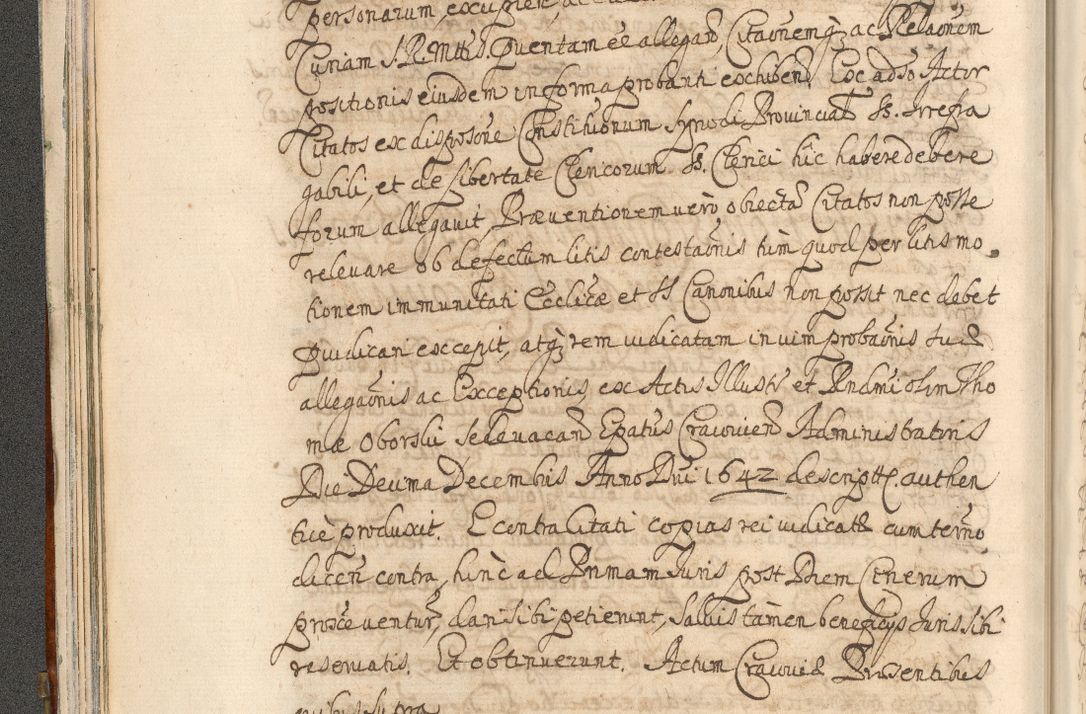 personarum, excipien, ac
Curiam S. R. Mttis. Dventam eē allegan̄, Citaōnemq̨ ac Relaōnem
positionis eiusdem in forma probanti exhiben̄. Ex adso Actor
Citatos ex disposōne Constitutionum Synodi Provincial̄ ss. Irrefra
gabili, et de libertate Clericorum ss. Clerici hic habere debere
forum allegavit, Præventionem verò obiectā Citatos non posse
relevare ob defectum litis contestaōnis tùm quod per litis mo
tionem immunitati Eccl̄icæ et SS Canonibus non possit nec debet
Dvidicari excepit, atq̨ rem iudicatam in vim probaōnis suæ
allegaōnis ac Exceptionis, ex Actis Illustr et Rndmi olim Tho
mæ Oborski sede vacan̄ Epatus Cracovien̄ Administratoris
Die Decima Decembris Anno Dni 1642 descriptt. authen
ticè produxit. E contra Citati copias rei iudicatæ cum termo
dicen̄ contra, hinc ad Primam Juris post Diem Cinerum
prox̄e ventur̄, dari sibi petierunt, salvis tamen beneficijs Juris sibi
reservatis. Et obtinuerunt. Actum Cracoviæ Præsentibus
quibus supra